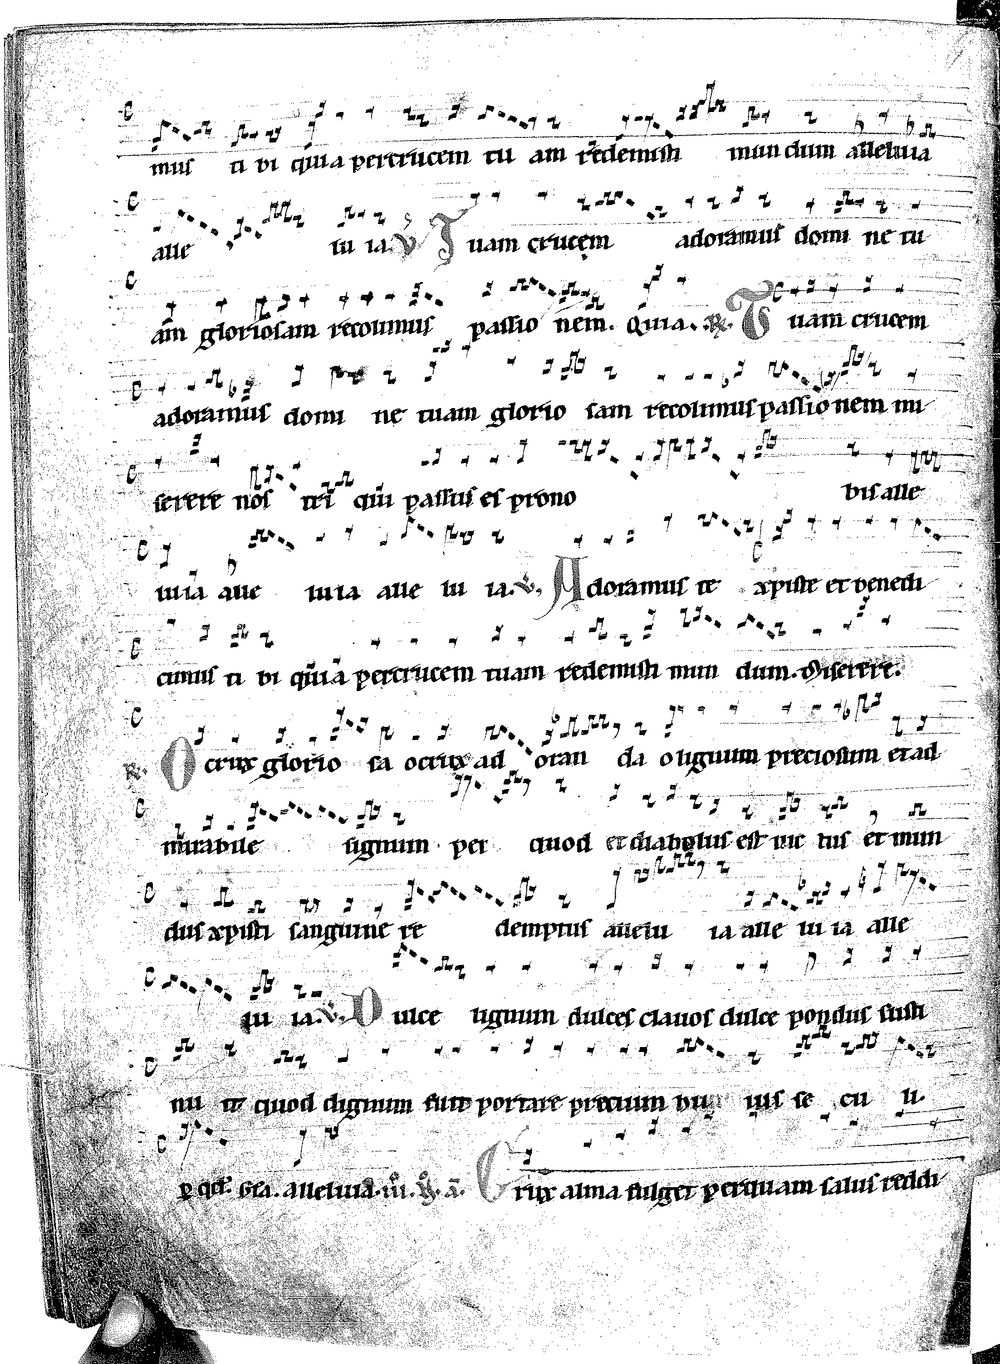 mus ti bi quia percrucem tu am redemisti mundum alleluia
alle lu ia. V. Tuam crucem adoramus domi ne tu
am gloriosam recolimus passio nem. Quia. R. Tuam crucem
adoramus domi ne tuam glorio sam recolimus passio nem mi
serere nos tri qui passus es pro no bis alle
luia alle luia alle lu ia. V. Adoramus te xpiste et benedi
cimus ti bi quia percrucem tuam redemisti mun dum. Miserere.
R. O crux glorio sa o crux ad oran da o lignum preciosum et ad
mirabile signum per quod et diabolus est vic tus et mun
dus xpisti sanguine re demptus allelu ia alle lu ia alle
lu ia. V. Dulce lignum dulces clavos dulce pondus susti
nu it quod dignum fuit portare precium hu ius se cu li.
p qd. Gla. alleluia. Crux alma fulget per quam salus reddi